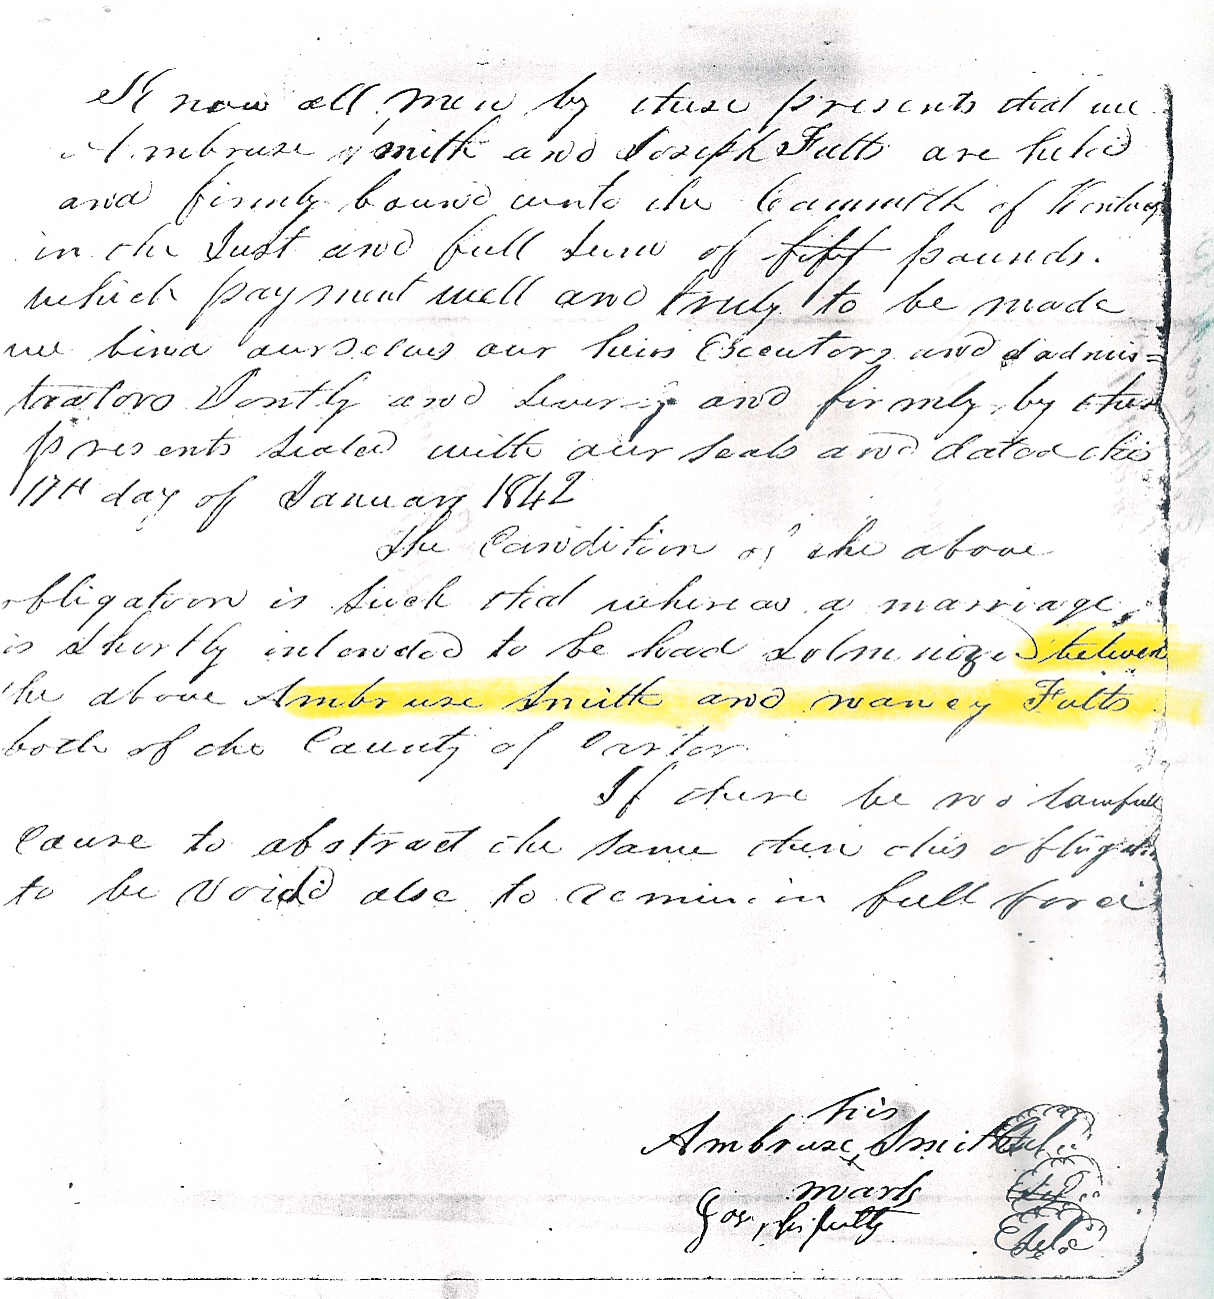 Know all men by these presents that we
Ambruse Smith and Joseph Fults are held
and firmly bound unto the Commth of Kentucy
in the Just and full Sum of fifty pounds.
which payment well and truly to be made
we bind ourselves our heirs Executors and admis=
trators Jontly and and firmly by these
presents sealed with our seals and dated this
17th day of January 1842
The Condition of the above
obligation is Such that whereas a marriage
is Shortly intended to be had Solmnized between
the above Ambruse Smith and nancy Fults
both of the County of
If there be no lawfull
Cause to abstruct the same then this
to be void else to in full force
his
Ambruse Smith
x
mark
Joseph fults